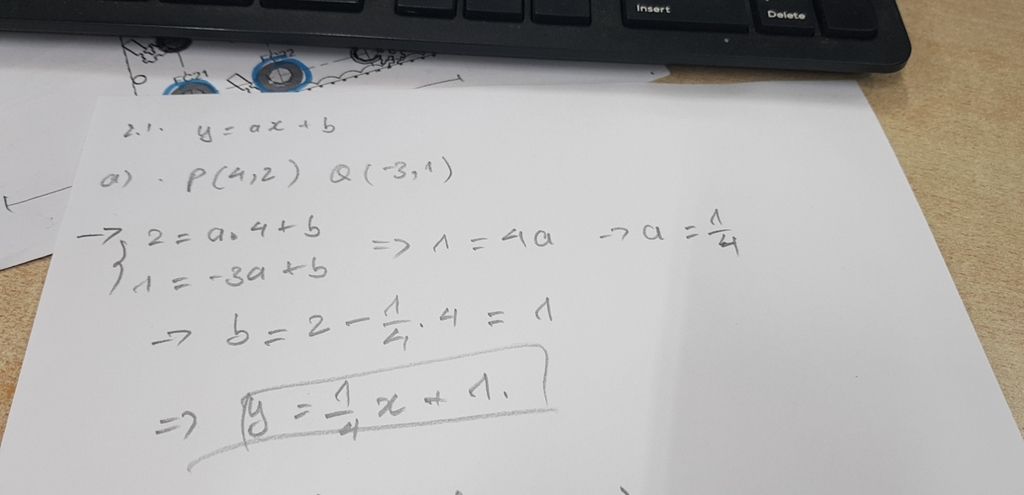 Insert
Delete
2.1. y = ax + b
a) . P(4,2) Q(-3,1)
→ } 2 = a.4 + b => 1 = 4a → a = 1/4
1 = -3a + b
→ b = 2 - 1/4 . 4 = 1
=> y = 1/4 x + 1.